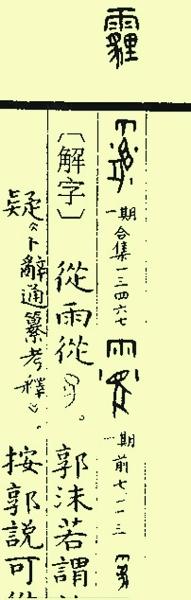 霾
一期 合集一三四六七
一期 前七
〔解字〕從雨從。郭沫若謂
《卜辭通纂考釋》。按郭說可從